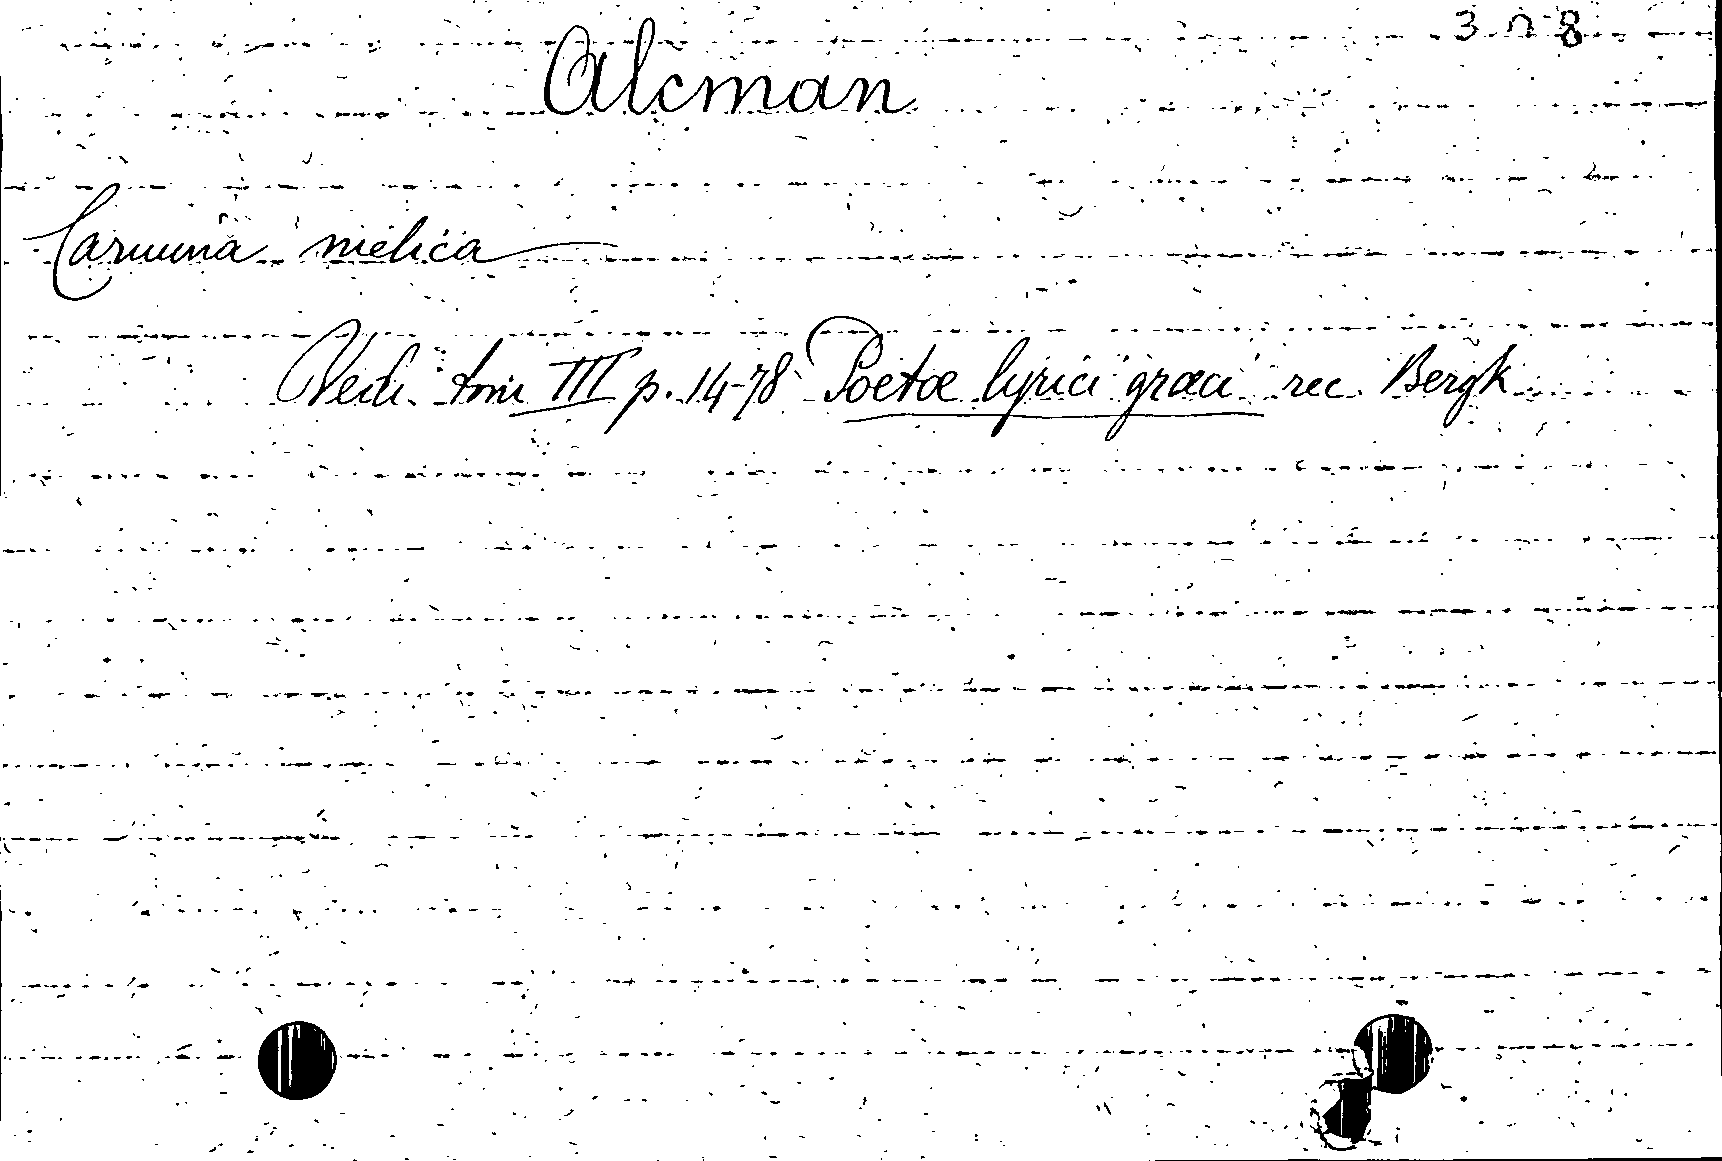 3 n 8
Alcman
Carmina melica
Vedi tom III p. 14-78 Poetæ lyrici græci rec. Bergk